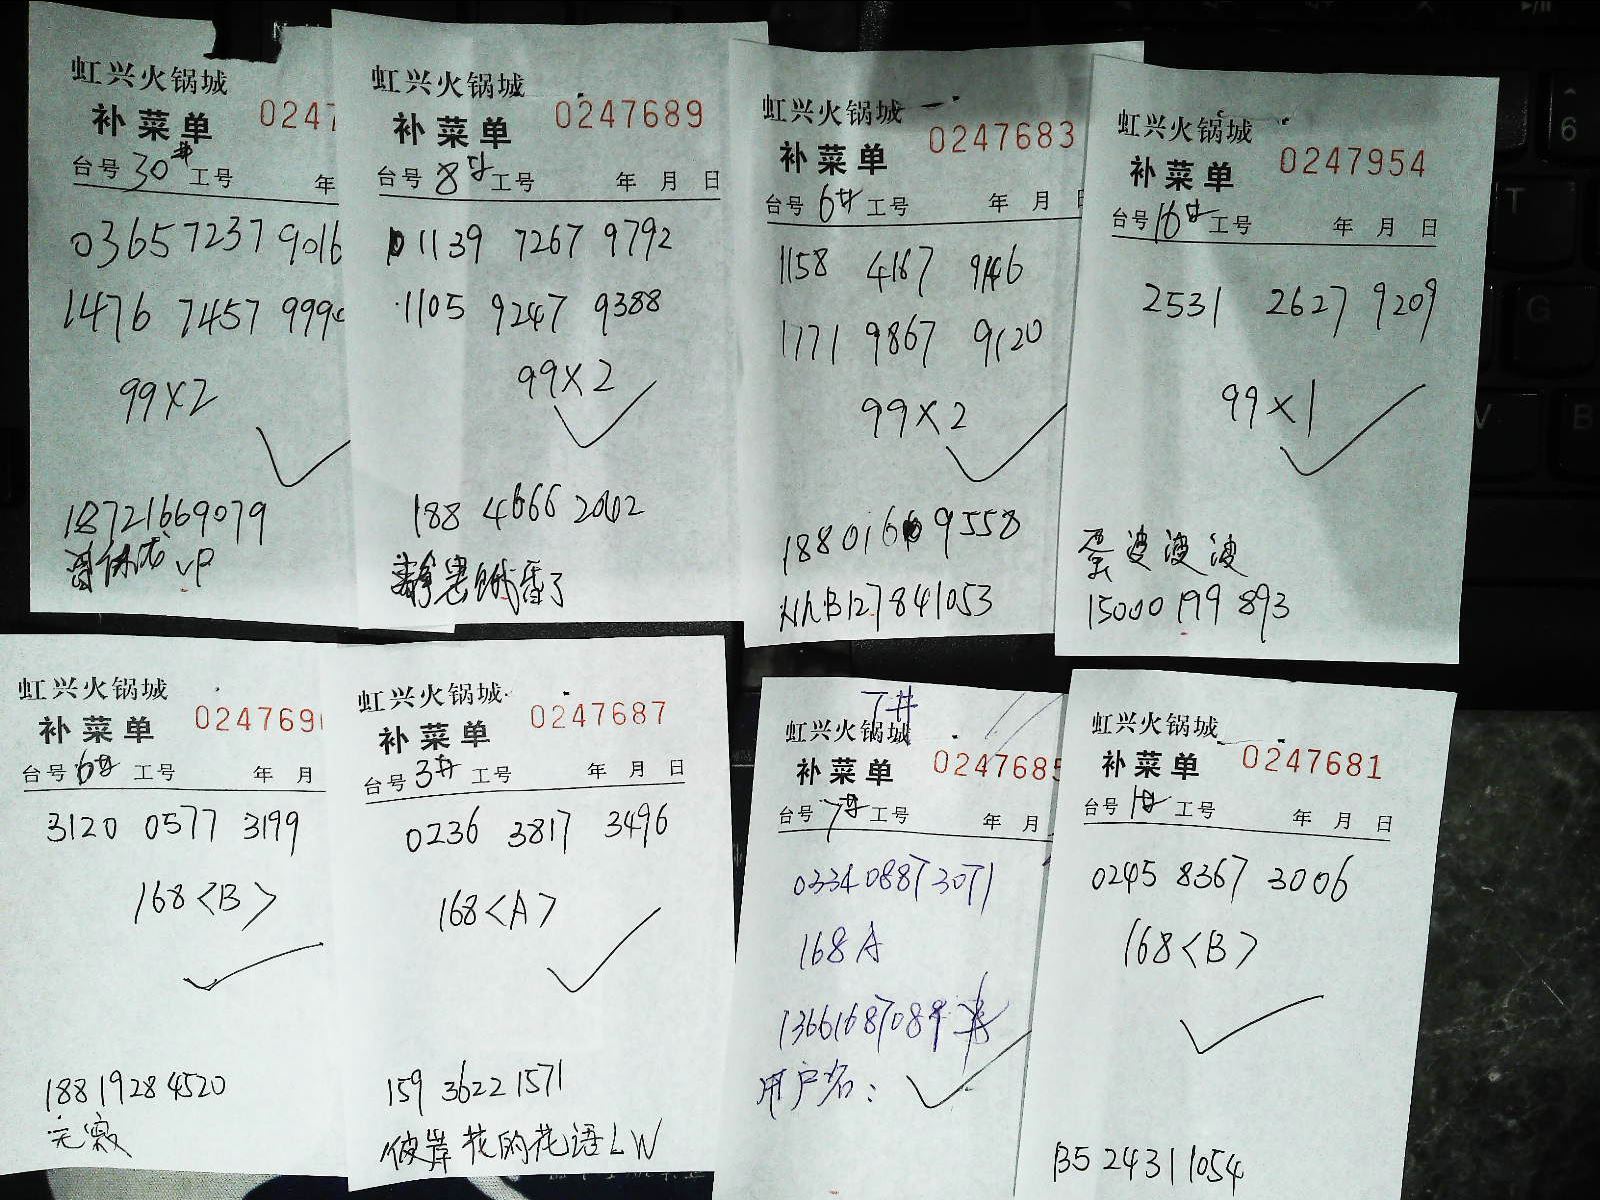 虹兴火锅城
补菜单 0247
台号 30# 工号 年
0365 7237 9016
1476 7457 999
99×2
18721669079
虹兴火锅城
补菜单 0247689
台号 8# 工号 年 月 日
01139 7267 9792
1105 9247 9388
99×2
188 4666 2042
虹兴火锅城
补菜单 0247683
台号 6# 工号 年 月 日
1158 4167 9146
1771 9867 9120
99×2
18801669558
127841053
虹兴火锅城
补菜单 0247954
台号 16# 工号 年 月 日
2531 2627 9209
99×1
婆婆波
15000 199 893
虹兴火锅城
补菜单 024769
台号 6# 工号 年 月
3120 0577 3199
168<B>
188 1928 4520
虹兴火锅城
补菜单 0247687
台号 3# 工号 年 月 日
0236 3817 3496
168<A>
159 3622 1571
彼岸花的花语LW
7#
虹兴火锅城
补菜单 0247685
台号 7# 工号 年 月
0334 0887 3071
168A
13661687089
用户名：
虹兴火锅城
补菜单 0247681
台号 1# 工号 年 月 日
0245 8367 3006
168<B>
B5 24311054
6
T
G
V
B